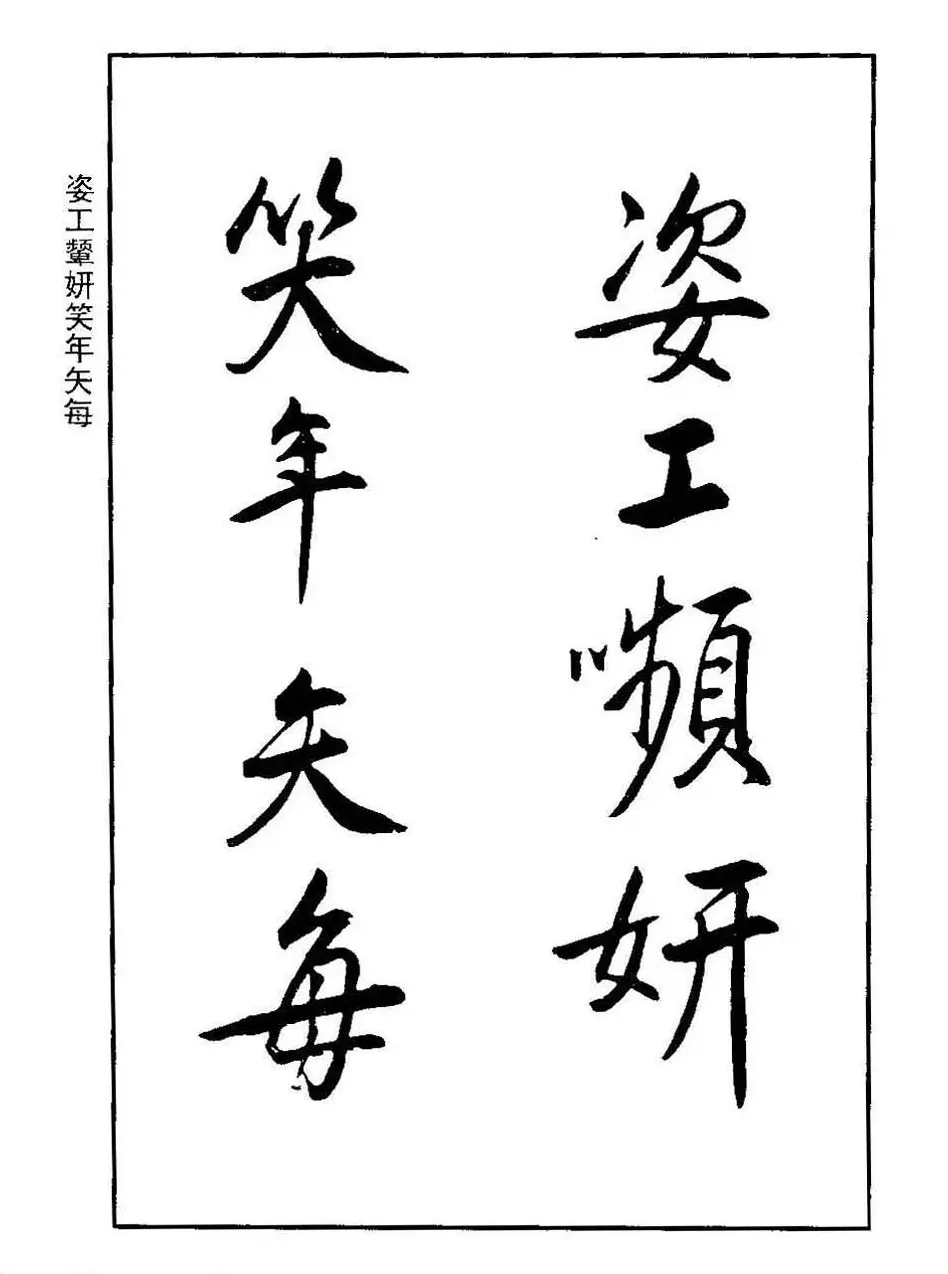 姿工嚬妍
笑年矢每
姿工颦妍笑年矢每